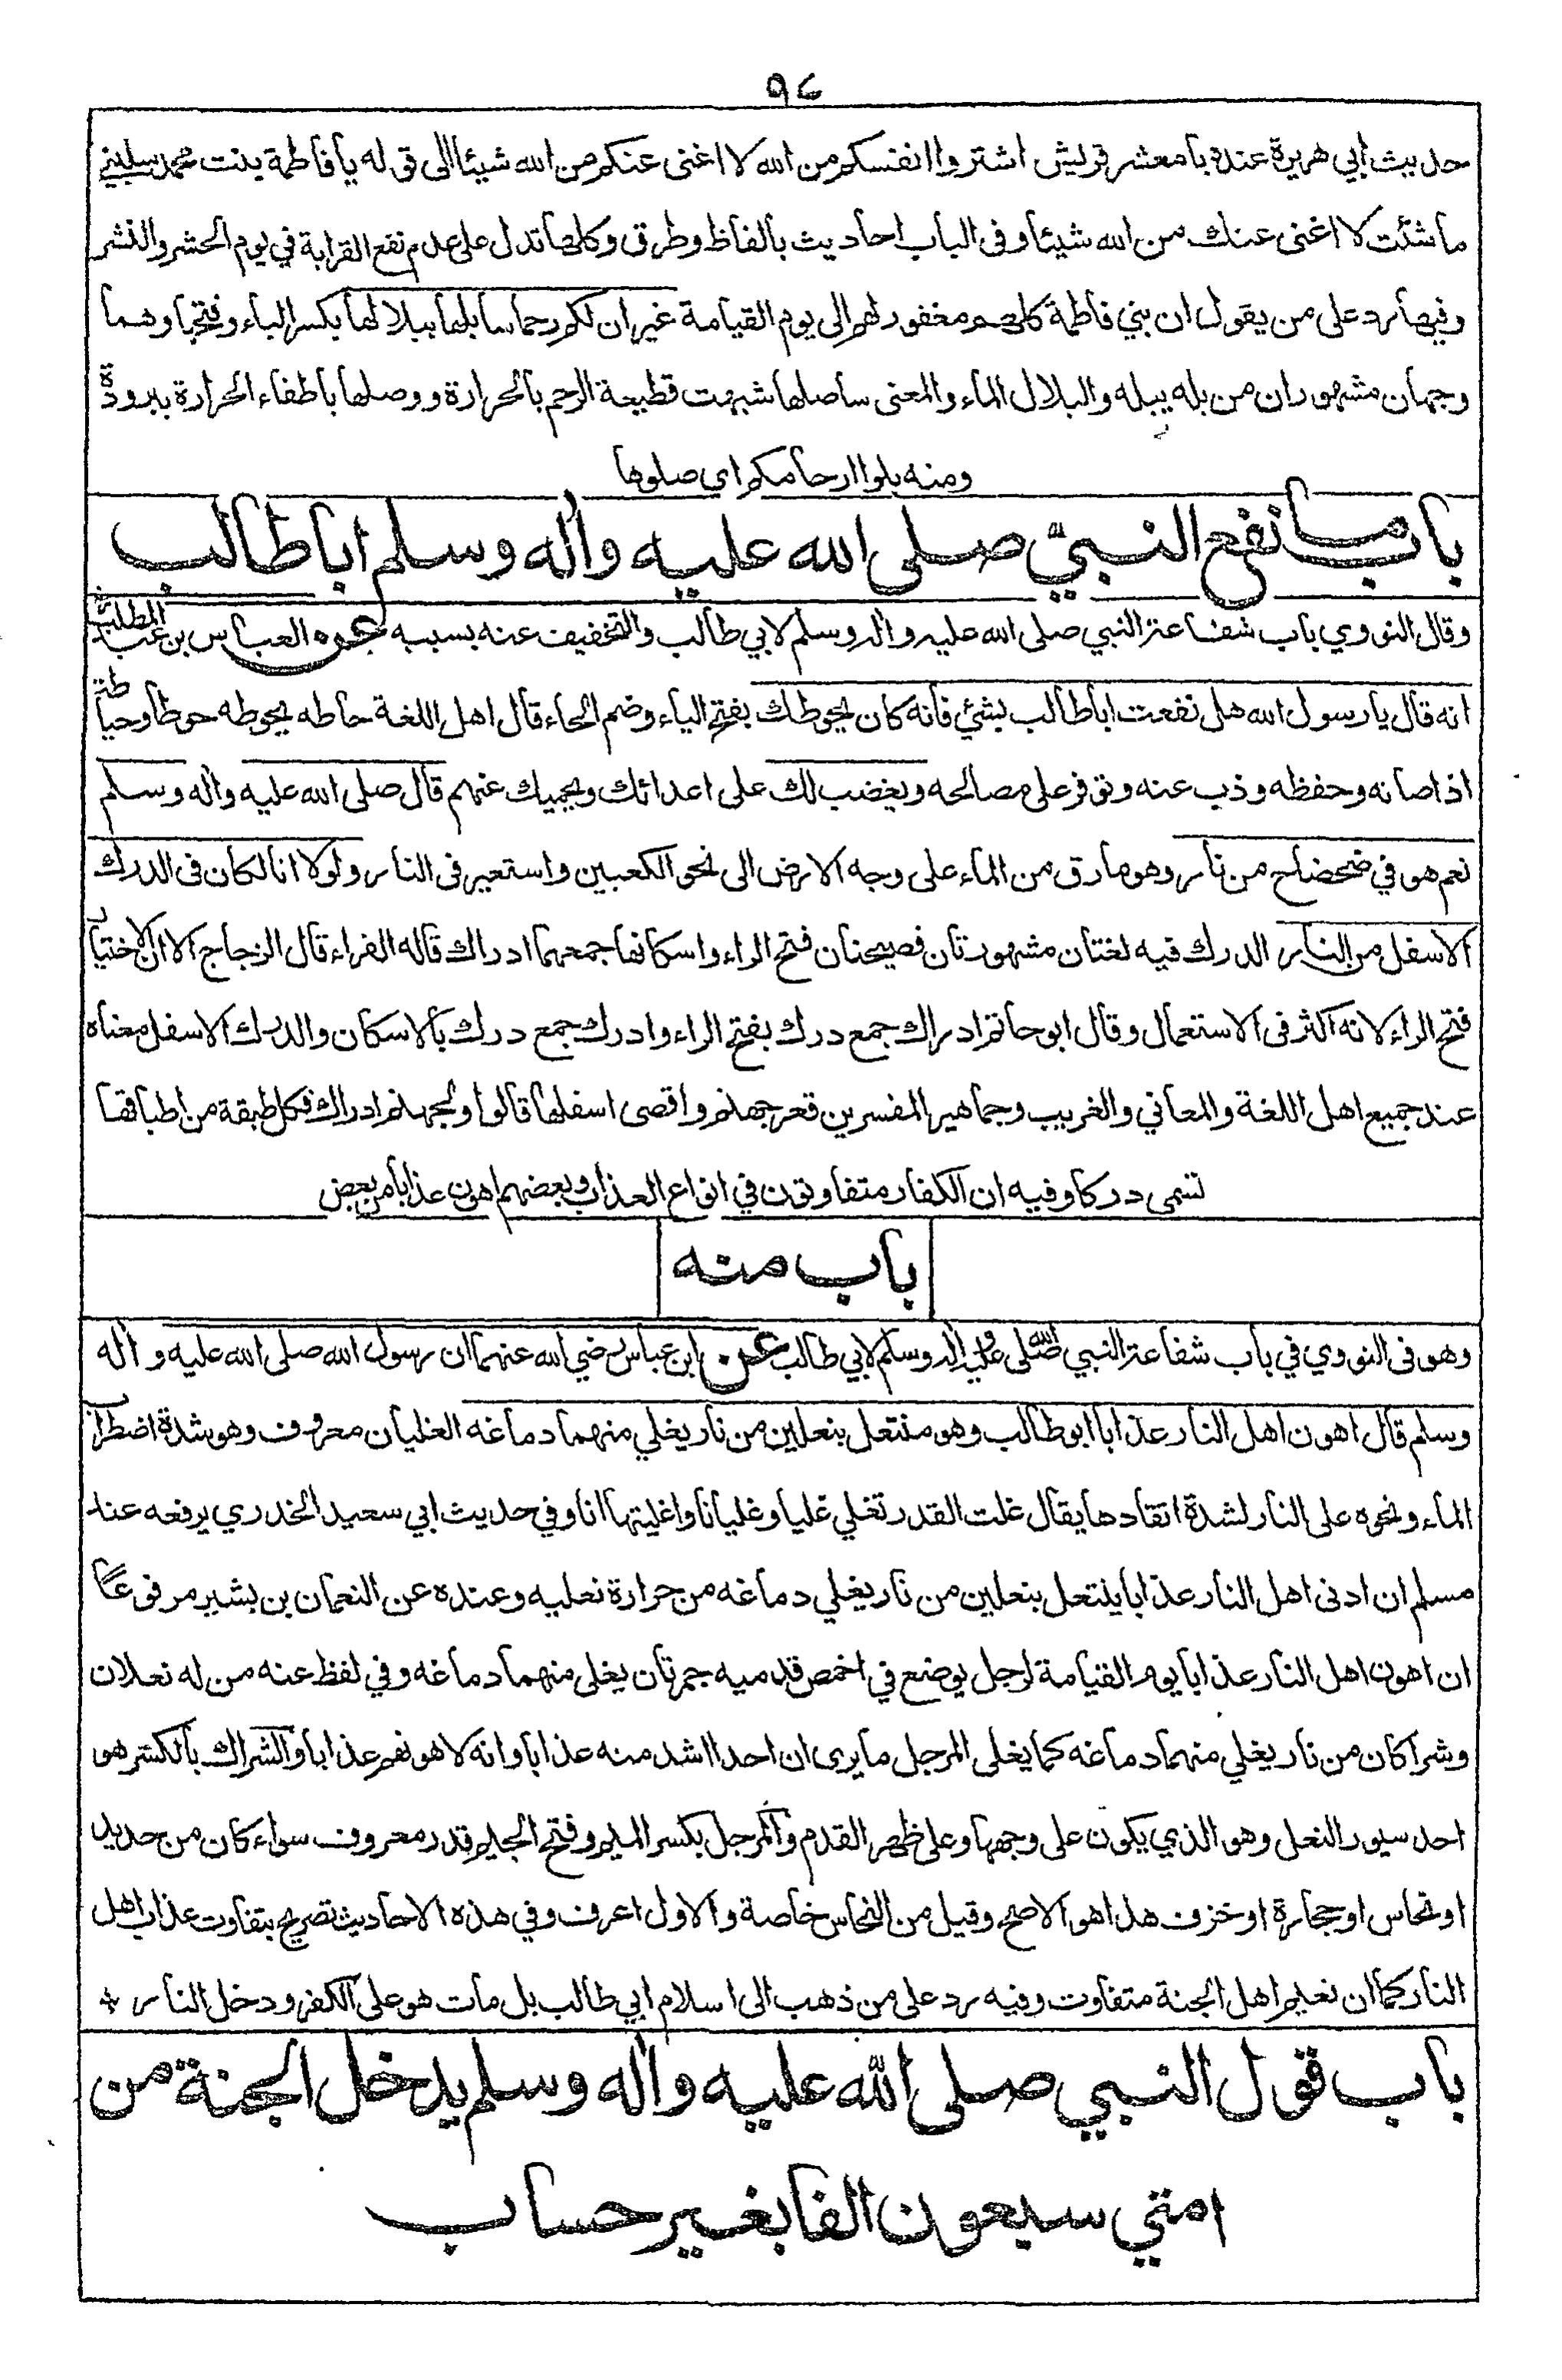 ٩٤
حديث ابي هريرة عنده يا معشر قريش اشتروا انفسكم من الله لا اغنى عنكم من الله شيئا الى قوله يا فاطمة بنت محمد سليني
ما شئت لا اغنى عنك من الله شيئا وفى الباب احاديث بالفاظ وطرق وكلها تدل على عدم نفع القرابة في يوم الحشر والنشر
وفيها رد على من يقول ان بني فاطمة كلهم مغفور لهم الى يوم القيامة غير ان لكم رحما سابلها ببلالها بكسر الباء وفتحها وهما
وجهان مشهوران من بله يبله والبلال الماء والمعنى ساصلها شبهت قطيعة الرحم بالحرارة ووصلها باطفاء الحرارة ببرودة
ومنه بلوا ارحامكم اي صلوها
باب ما نفع النبيّ صلى الله عليه واٰله وسلم ابا طالب
وقال النووي باب شفاعة النبي صلى الله عليه واٰله وسلم لابي طالب والتخفيف عنه بسببه عن العباس بن عبد المطلب
انه قال يا رسول الله هل نفعت ابا طالب بشئي فانه كان يحوطك بفتح الياء وضم الحاء قال اهل اللغة حاطه يحوطه حوطا وحياطة
اذا صانه وحفظه وذب عنه وتوفر على مصالحه ويغضب لك على اعدائك ويحميك عنهم قال صلى الله عليه واٰله وسلم
نعم هو في ضحضاح من نار وهو ما رق من الماء على وجه الارض الى نحو الكعبين واستعير فى النار ولولا انا لكان فى الدرك
الاسفل من النار الدرك فيه لغتان مشهورتان فصيحتان فتح الراء واسكانها جمعهما ادراك قاله الفراء قال الزجاج الا ان الاختيار
فتح الراء لانه اكثر فى الاستعمال وقال ابو حاتم ادراك جمع درك بفتح الراء وادرك جمع درك بالاسكان والدرك الاسفل معناه
عند جميع اهل اللغة والمعاني والغريب وجماهير المفسرين قعر جهنم واقصى اسفلها قالوا ولجهنم ادراك فكل طبقة من اطباقها
تسمى دركا وفيه ان الكفار متفاوتون في انواع العذاب وبعضهم اهون عذابا من بعض
باب منه
وهو فى النووي في باب شفاعة النبي صلى الله عليه واٰله وسلم لابي طالب عن ابن عباس رضي الله عنهما ان رسول الله صلى الله عليه واٰله
وسلم قال اهون اهل النار عذابا ابو طالب وهو منتعل بنعلين من نار يغلي منهما دماغه الغليان معروف وهو شدة اضطراب
الماء ونحوه على النار لشدة اتقادها يقال غلت القدر تغلي غليا وغليانا واغليتها انا وفي حديث ابي سعيد الخدري يرفعه عند
مسلم ان ادنى اهل النار عذابا ينتعل بنعلين من نار يغلي دماغه من حرارة نعليه وعنده عن النعمان بن بشير مرفوعًا
ان اهون اهل النار عذابا يوم القيامة لرجل يوضع في اخمص قدميه جمرتان يغلى منهما دماغه وفي لفظ عنه من له نعلان
وشراكان من نار يغلي منهما دماغه كما يغلى المرجل ما يرى ان احدا اشد منه عذابا وانه لاهونهم عذابا والشراك بالكسر هو
احد سيور النعل وهو الذي يكون على وجهها وعلى ظهر القدم والمرجل بكسر الميم وفتح الجيم قدر معروف سواء كان من حديد
او نحاس او حجارة او خزف هذا هو الاصح وقيل من النحاس خاصة والاول اعرف وفي هذه الاحاديث تصريح بتفاوت عذاب اهل
النار كما ان نعيم اهل الجنة متفاوت وفيه رد على من ذهب الى اسلام ابي طالب بل مات هو على الكفر ودخل النار
باب قول النبي صلى الله عليه واٰله وسلم يدخل الجنة من
امتي سبعون الفا بغير حساب